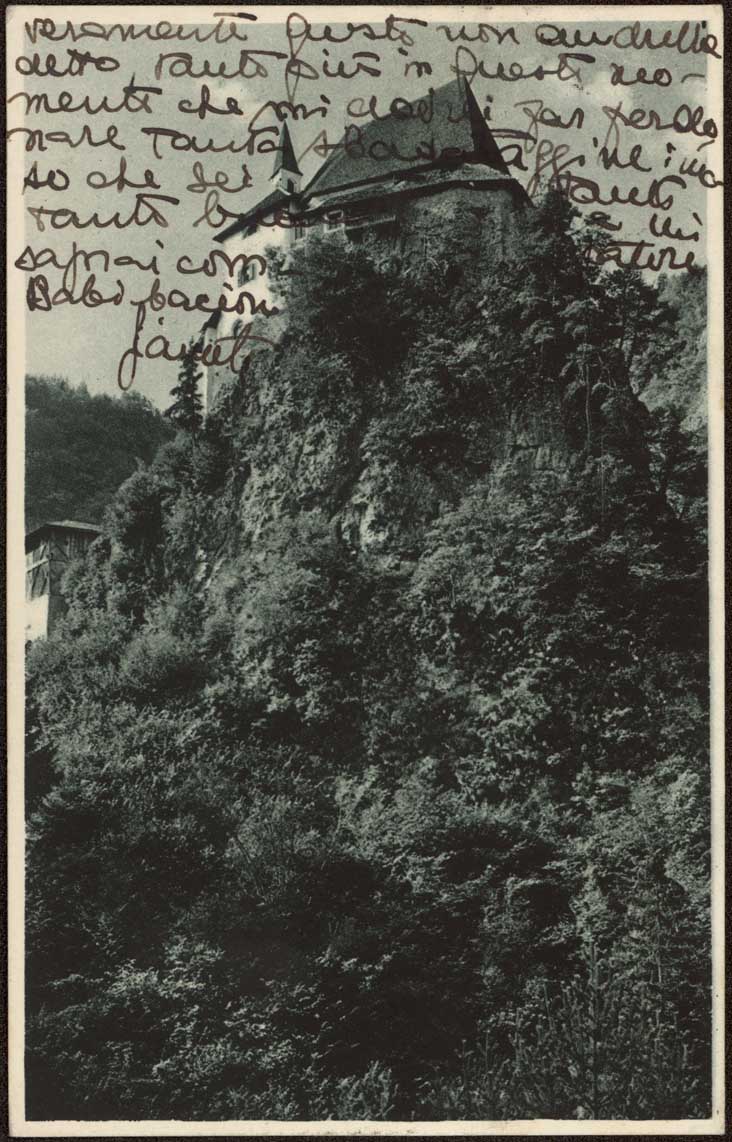 veramente questo non andrebbe
detto, tanto più in questi mo-
menti che mi dovrei far perdo
nare tanta sbadataggine: ma
so che sei tanto
tanto buona e mi
saprai com
Babi bacioni
janet